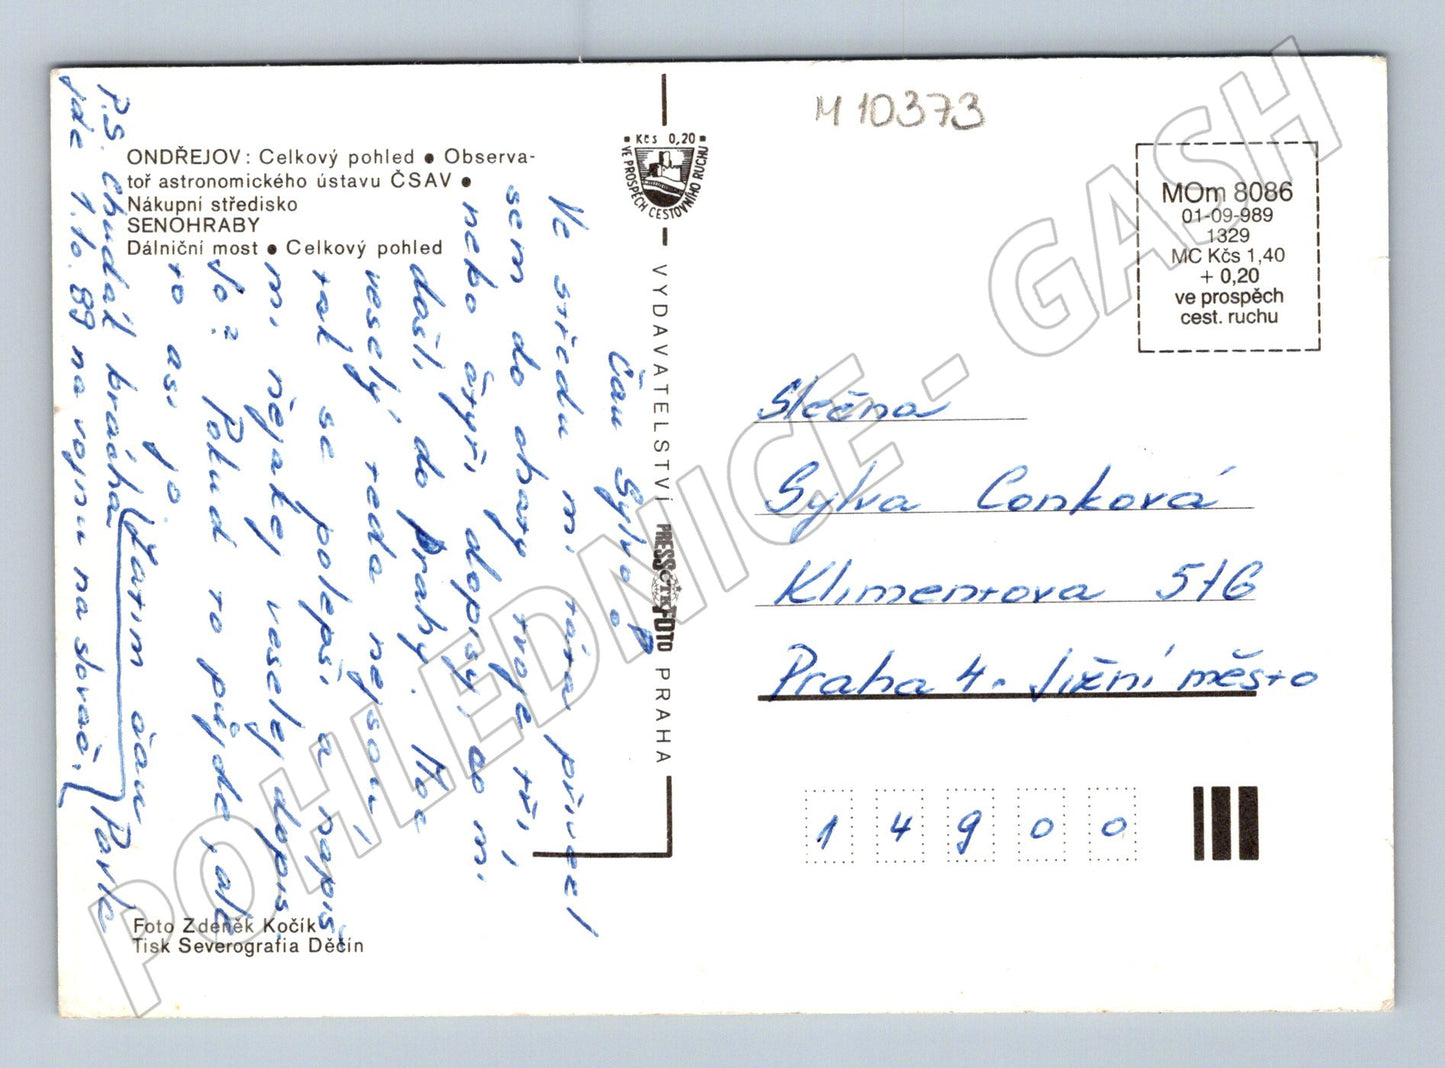 M 10373
ONDŘEJOV: Celkový pohled ● Observa-
toř astronomického ústavu ČSAV ●
Nákupní středisko
SENOHRABY
Dálniční most ● Celkový pohled
Kčs 0,20
VE PROSPĚCH CESTOVNÍHO RUCHU
VYDAVATELSTVÍ PRESSFOTO PRAHA
ČTK
MOm 8086
01-09-989
1329
MC Kčs 1,40
+ 0,20
ve prospěch
cest. ruchu
Čau Sylvo
Ve středu mi táta přivezl
sem do chaty tvoje tři,
nebo čtyři dopisy, co mi
došli do Prahy. Moc
veselý teda nejsou,
tak se polepši a napiš
mi nějakej veselej dopis
Jo? Pokud to půjde, ale
to asi jo.
Zatím čau
Pavle
P.S. Chudák brácha
jde 1.10.89 na vojnu na slovač.
Slečna
Sylva Conková
Klimentova 516
Praha 4 - Jižní město
14900
Foto Zdeněk Kočík
Tisk Severografia Děčín
POHLEDNICE - GASH